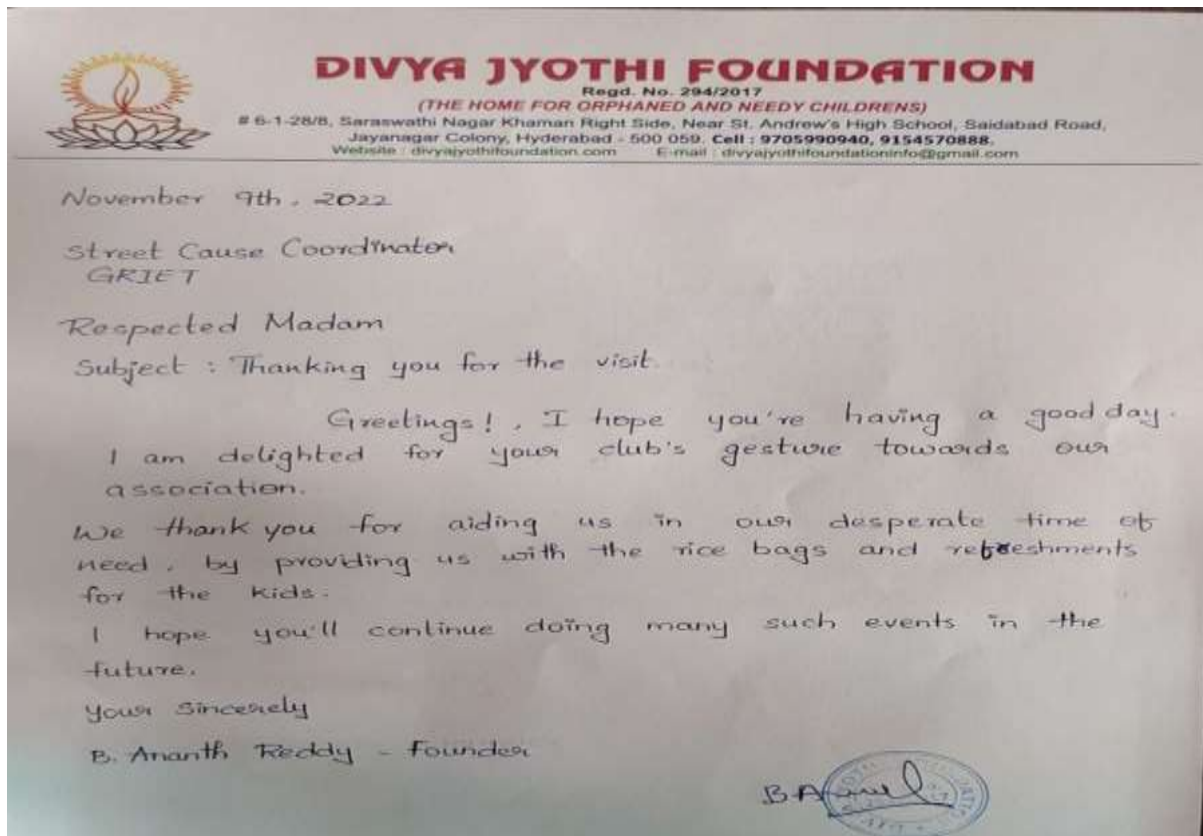 DIVYA JYOTHI FOUNDATION
Regd. No. 294/2017
(THE HOME FOR ORPHANED AND NEEDY CHILDRENS)
# 6-1-28/8, Saraswathi Nagar Khaman Right Side, Near St. Andrew's High School, Saidabad Road,
Jayanagar Colony, Hyderabad - 500 059. Cell : 9705990940, 9154570888.
Website : divyajyothifoundation.com E-mail : divyajyothifoundationinfo@gmail.com
November 9th, 2022
Street Cause Coordinator
GRIET
Respected Madam
Subject : Thanking you for the visit.
Greetings!, I hope you're having a good day.
I am delighted for your club's gesture towards our
association.
We thank you for aiding us in our desperate time of
need, by providing us with the rice bags and refreshments
for the kids.
I hope you'll continue doing many such events in the
future.
Your Sincerely
B. Ananth Reddy - Founder